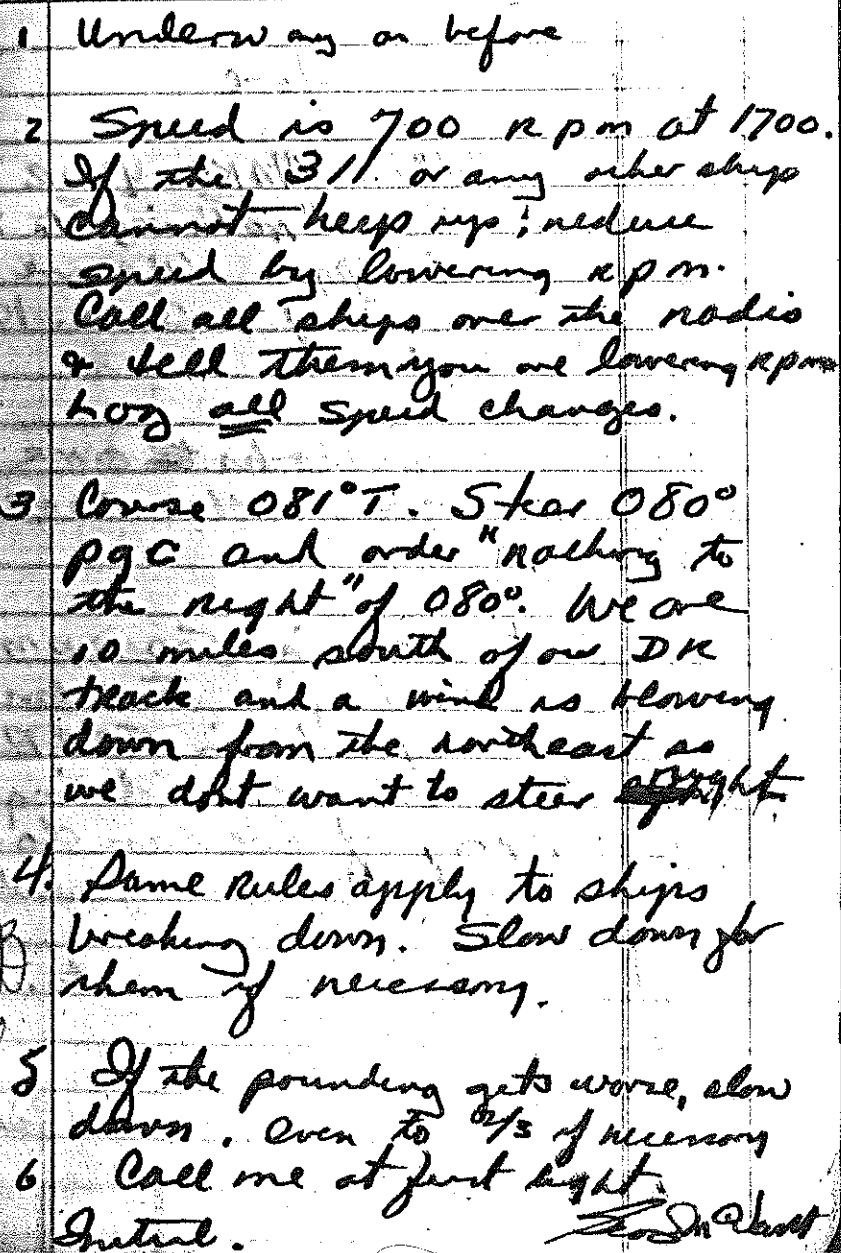 1 Underway as before
2 Speed is 700 rpm at 1700.
If the 311 or any other ships
cannot keep up; reduce
speed by lowering rpm.
Call all ships over the radio
& tell them you are lowering rpm
Log all speed changes.
3 Course 081°T. Steer 080°
pgc and order "nothing to
the right" of 080°. We are
10 miles south of our DR
track and a wind is blowing
down from the northeast so
we dont want to steer right.
4. Same rules apply to ships
breaking down. Slow down for
them if necessary.
5 If the pounding gets worse, slow
down. even to 2/3 if necessary
6 Call me at first light.
Initial.